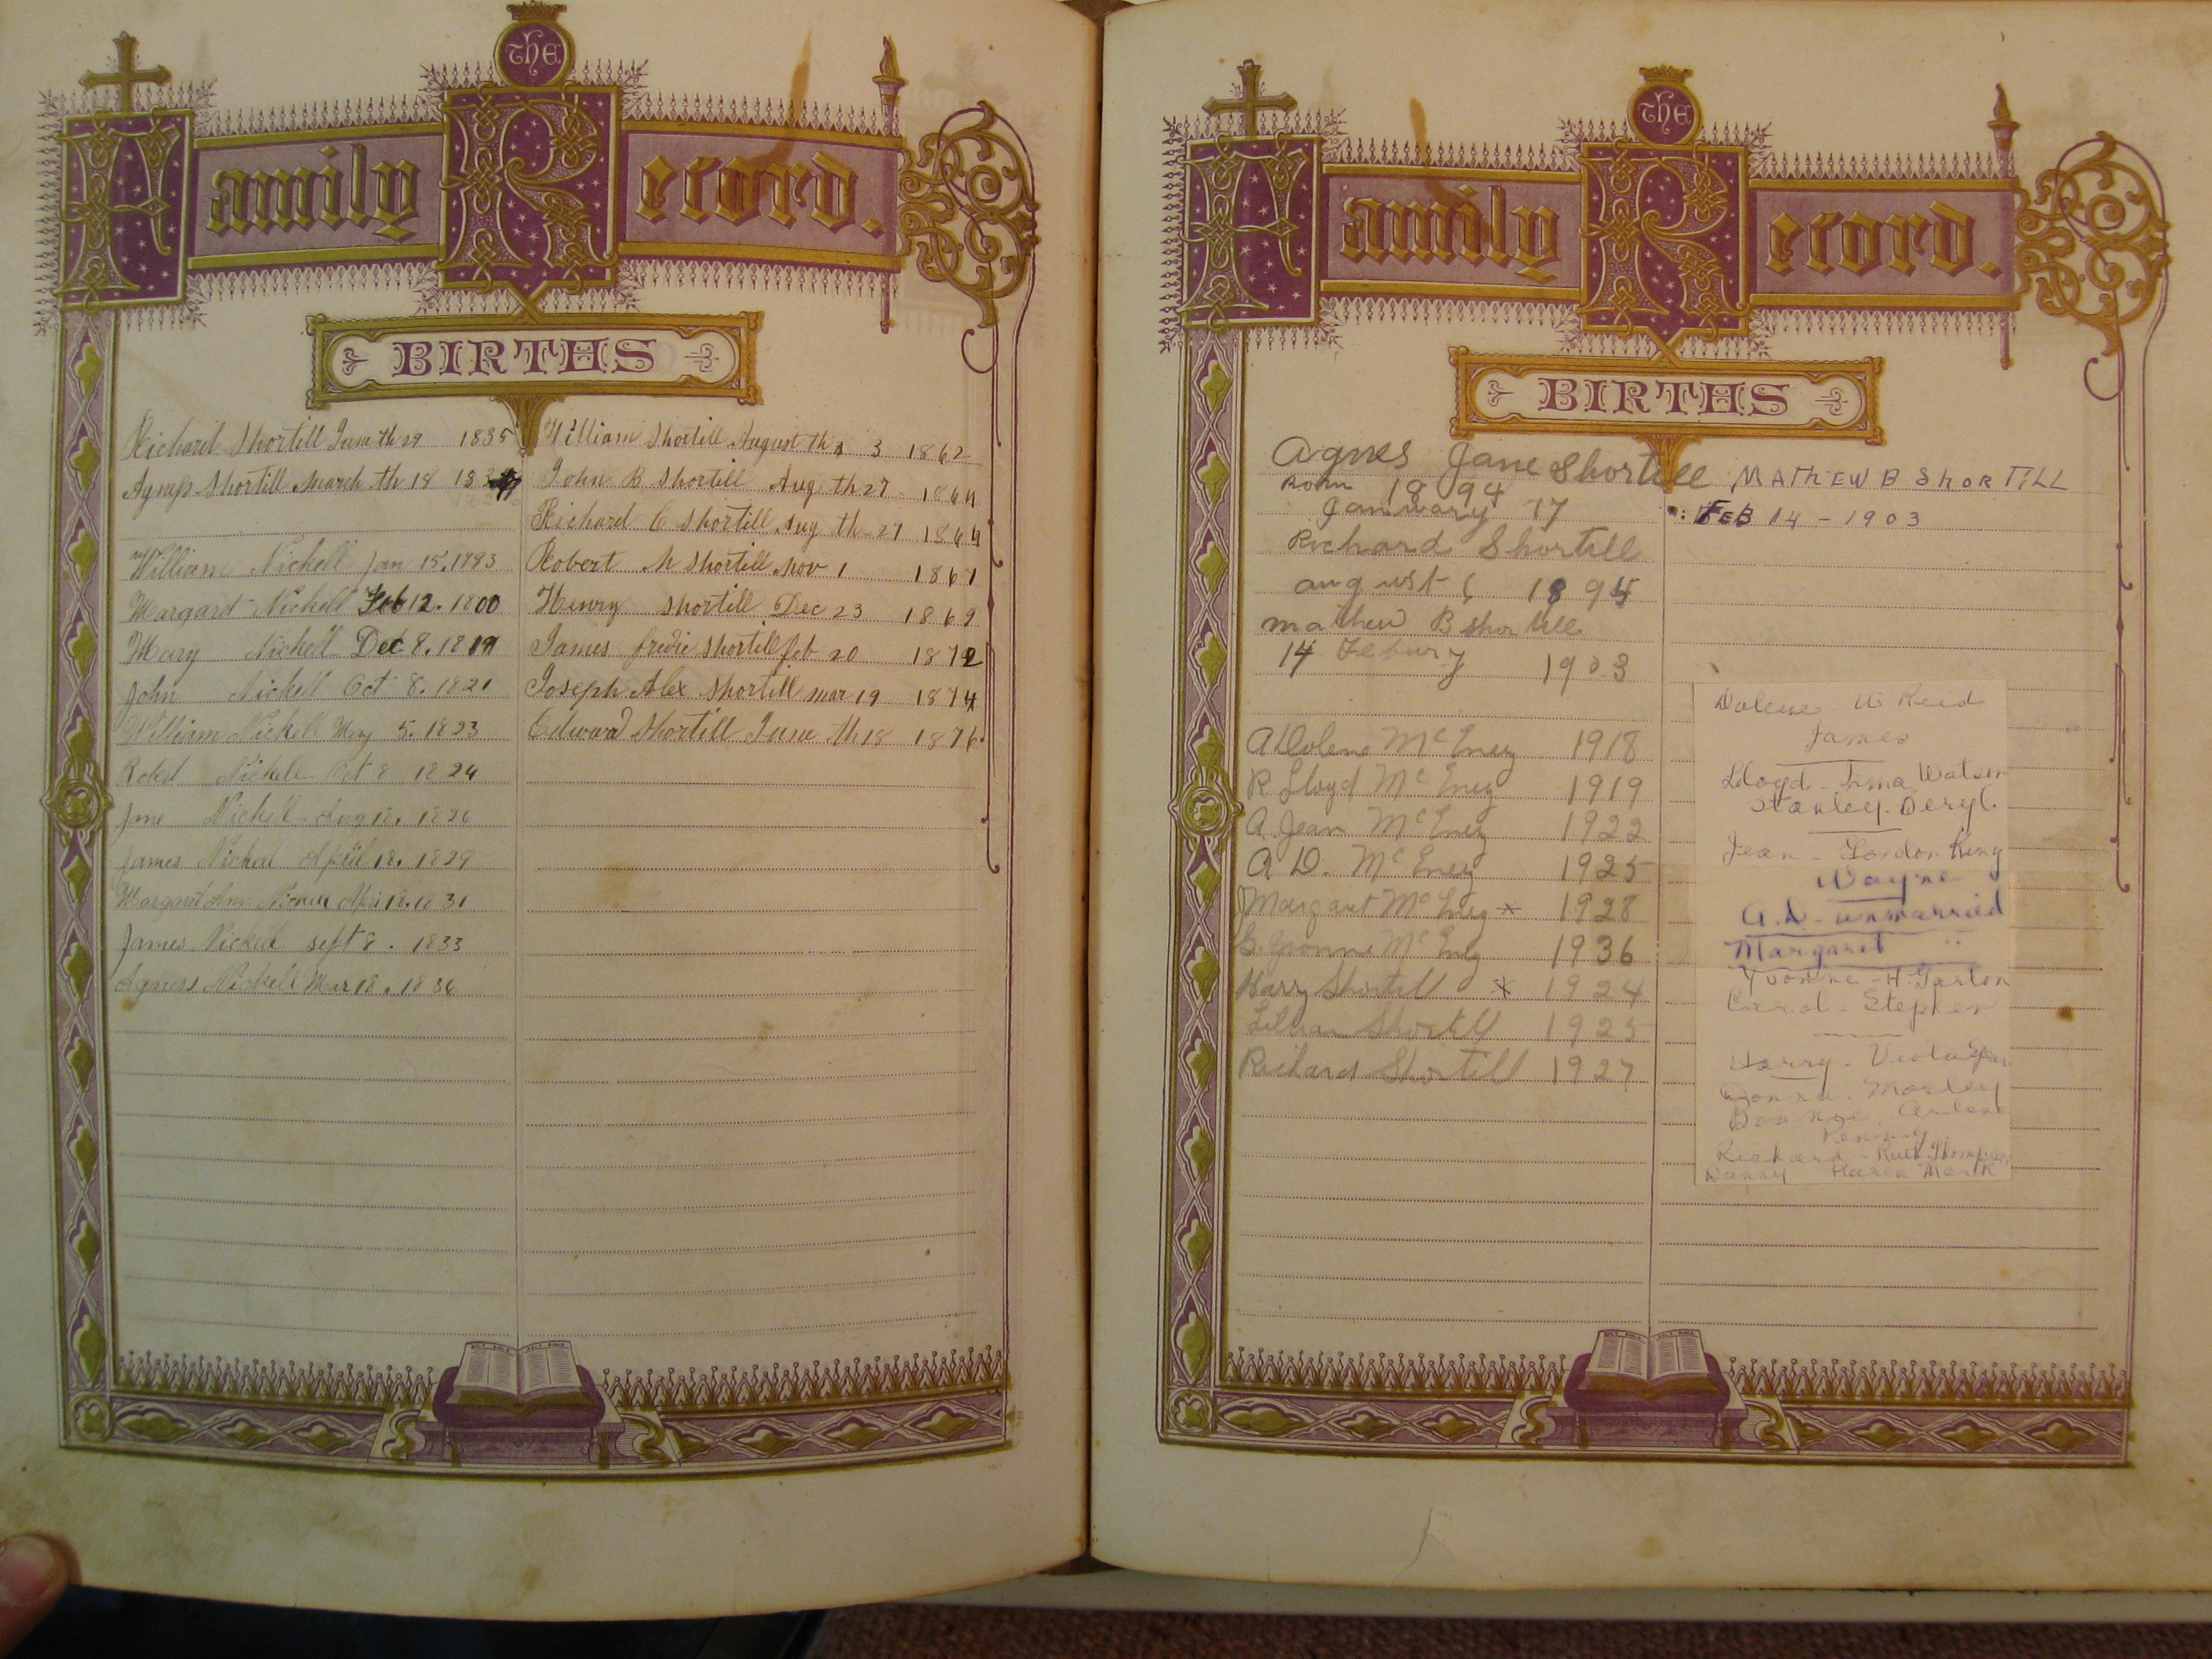 The Family Record.
BIRTHS
Richard Shortill June th 29 1835
Agness Shortill March th 18
William Nickell Jan 15. 1793
Margard Nickell Feb 12. 1800
Mary Nickell Dec 8. 1819
John Nickell Oct 8. 1821
William Nickell May 5. 1823
Robert Nickell Oct 8 1824
Jane Nickell Aug 18. 1826
James Nickell April 18. 1829
Margaret Ann Nickell 1831
James Nickell sept 8. 1833
Agness Nickell Mar 18. 1836
William Shortill August th 3 1862
John B Shortill Aug th 27 1864
Richard C Shortill Aug th 27 1864
Robert M Shortill Nov 1 1867
Henry Shortill Dec 23 1869
James fredic Shortill feb 20 1872
Joseph Alex Shortill mar 19 1874
Edward Shortill June th 18 1876
The Family Record.
BIRTHS
Agnes Jane Shortill
Born 1894
January 17
Richard Shortill
august 6 1895
mathew B Shortill
14 Febury 1903
A Dolene McEney 1918
R Lloyd McEney 1919
A. Jean McEney 1922
A D. McEney 1925
Margaret McEney x 1928
G. Yvonne McEney 1936
Harry Shortill x 1924
Lillian Shortill 1925
Richard Shortill 1927
MATHEW B SHORTILL
FEB 14 - 1903
Dolene - W Reid
James
Lloyd - Irma Watson
Stanley. Beryl.
Jean - Gordon King
Wayne
A.D - unmarried
Margaret "
Yvonne - H. Garton
Carol - Stephen
Harry - Viola
Donna. Morley
Bonnie. Arlene
Penny
Richard - Ruth Thompson
Danny Karen Mark